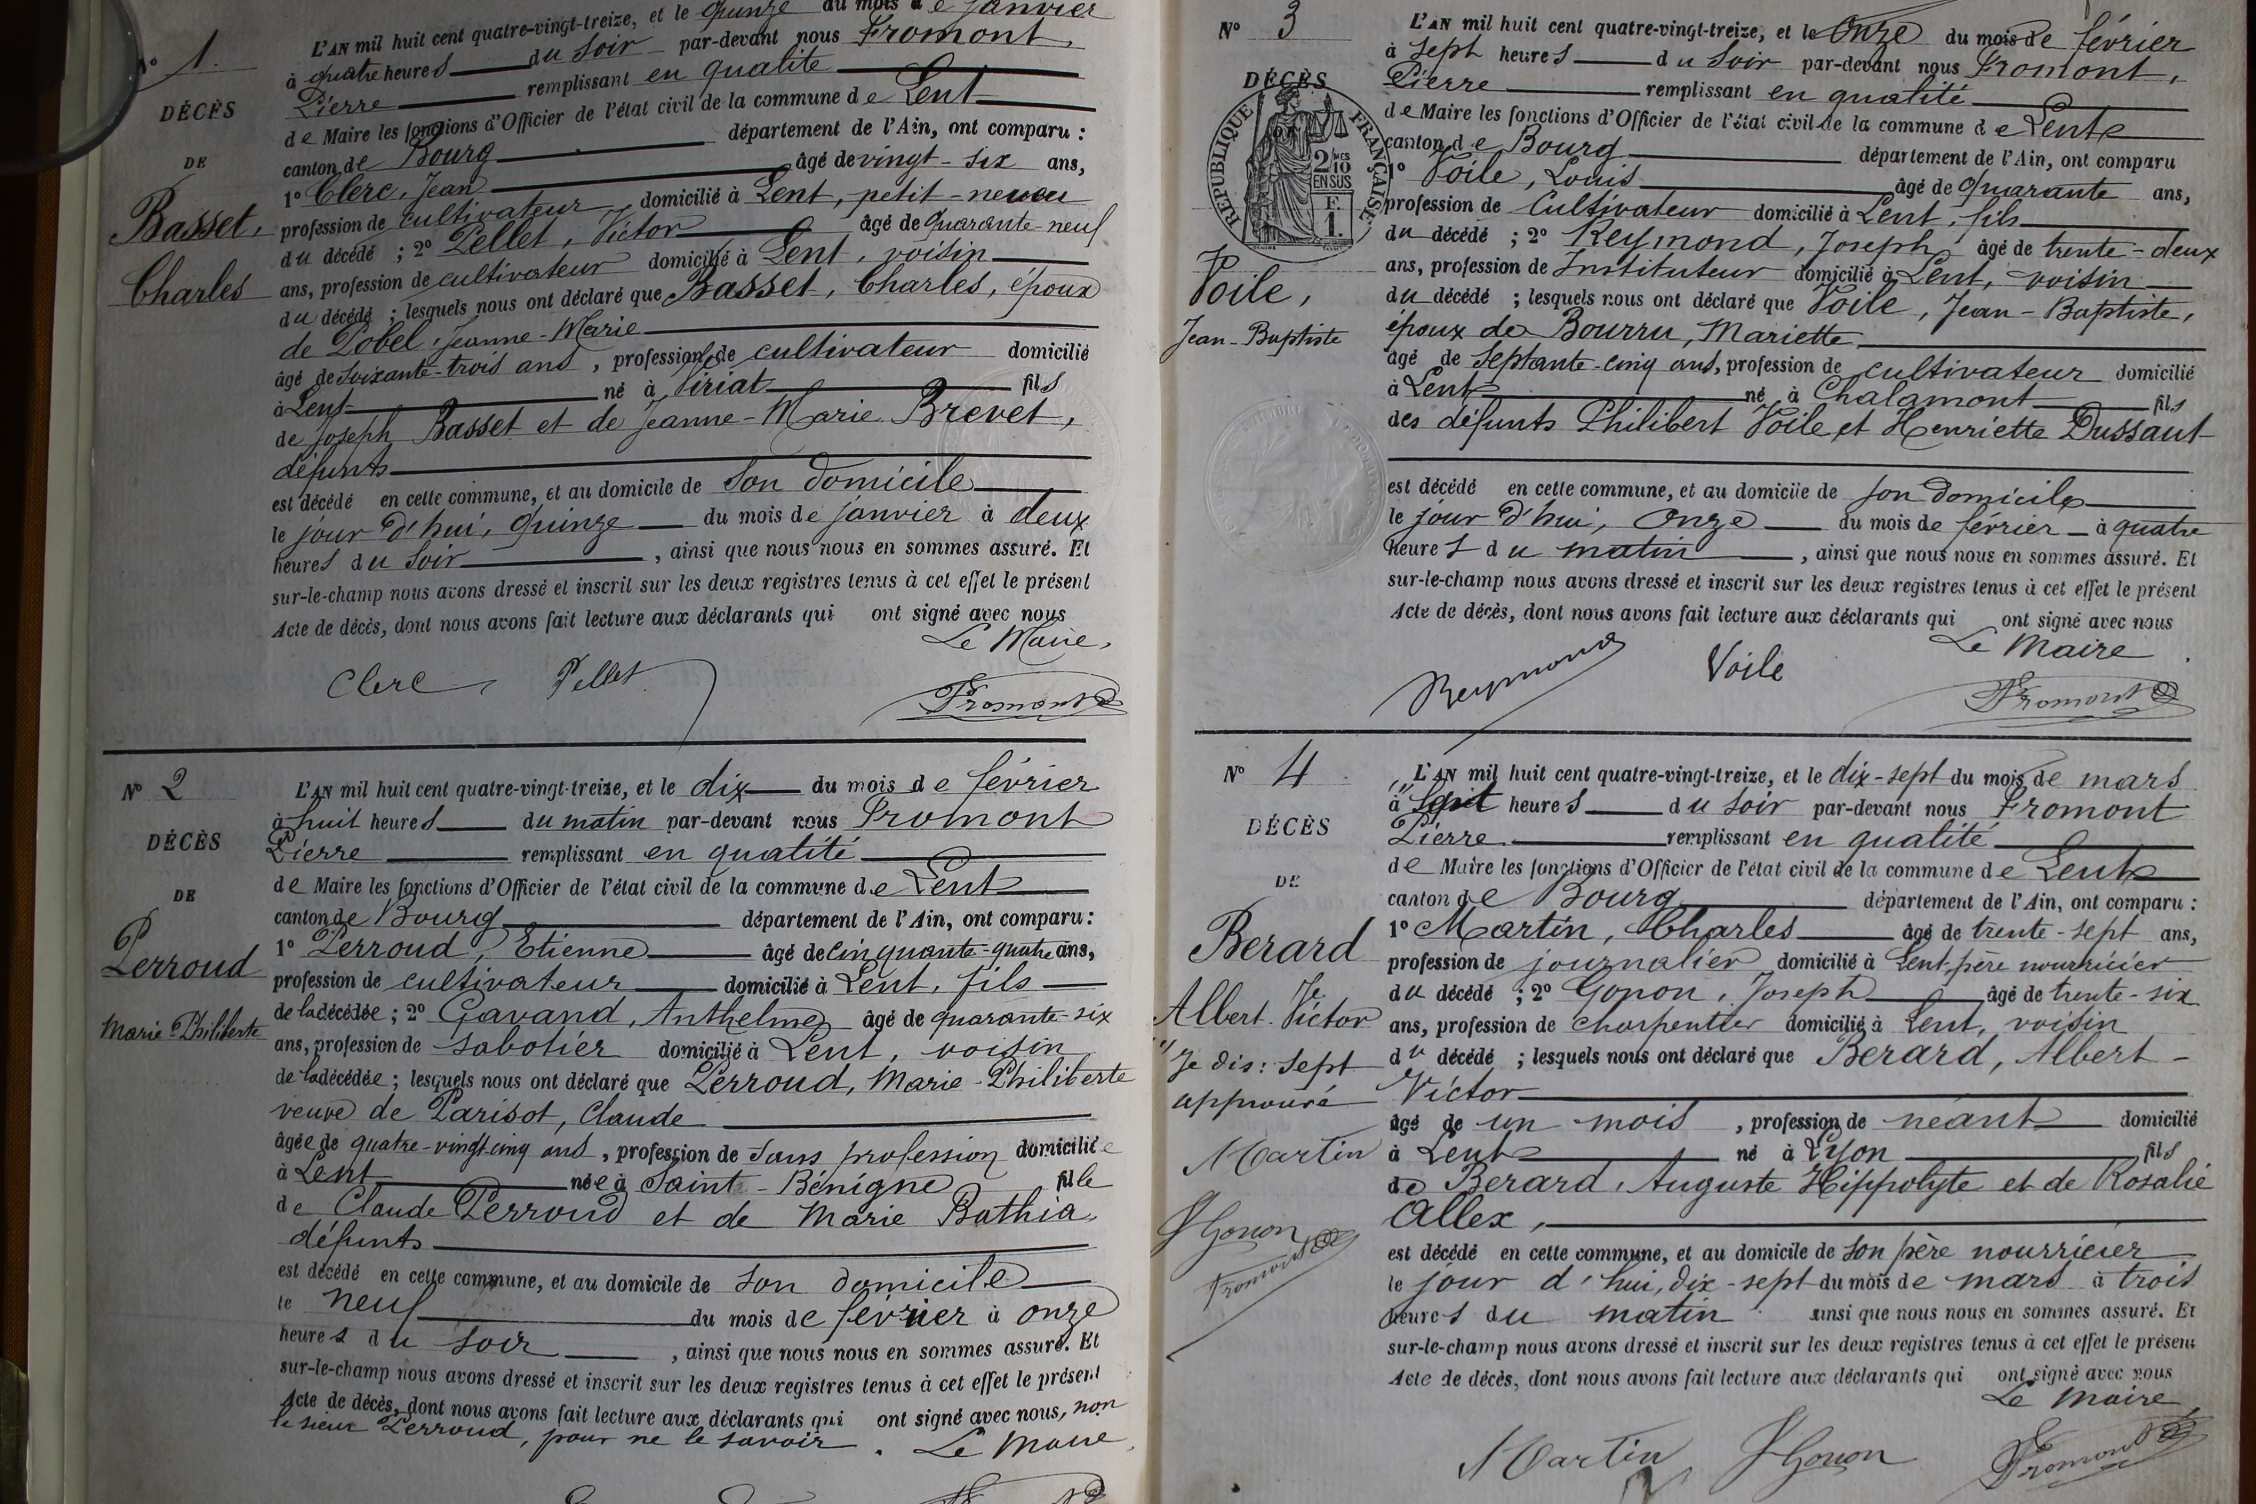 L'AN mil huit cent quatre-vingt-treize, et le quinze du mois de janvier
N° 1.
à quatre heures du soir par-devant nous Fromont,
Pierre remplissant en qualité
DÉCÈS
de Maire les fonctions d'Officier de l'état civil de la commune de Lent
DE
canton de Bourg département de l'Ain, ont comparu :
1° Clerc, Jean âgé de vingt-six ans,
Basset,
profession de cultivateur domicilié à Lent, petit-neveu
du décédé ; 2° Pellet, Victor âgé de quarante-neuf
Charles
ans, profession de cultivateur domicilié à Lent, voisin
du décédé ; lesquels nous ont déclaré que Basset, Charles, époux
de Pobel, Jeanne-Marie
âgé de soixante-trois ans, profession de cultivateur domicilié
à Lent né à Viriat fils
de Joseph Basset et de Jeanne-Marie Brevet,
défunts
est décédé en cette commune, et au domicile de son domicile
le jour d'hui, quinze du mois de janvier à deux
heures du soir, ainsi que nous nous en sommes assuré. Et
sur-le-champ nous avons dressé et inscrit sur les deux registres tenus à cet effet le présent
Acte de décès, dont nous avons fait lecture aux déclarants qui ont signé avec nous
Le Maire,
Clerc Pellet Fromont
N° 2
L'AN mil huit cent quatre-vingt-treize, et le dix du mois de février
à huit heures du matin par-devant nous Fromont
DÉCÈS
Pierre remplissant en qualité
de Maire les fonctions d'Officier de l'état civil de la commune de Lent
DE
canton de Bourg département de l'Ain, ont comparu :
Perroud
1° Perroud, Etienne âgé de cinquante-quatre ans,
profession de cultivateur domicilié à Lent, fils
Marie Philiberte
de la décédée ; 2° Gavand, Anthelme âgé de quarante-six
ans, profession de sabotier domicilié à Lent, voisin
de la décédée ; lesquels nous ont déclaré que Perroud, Marie-Philiberte
veuve de Parisot, Claude
âgée de quatre-vingt-cinq ans, profession de sans profession domiciliée
à Lent née à Saint-Bénigne fille
de Claude Perroud et de Marie Bathia,
défunts
est décédé en cette commune, et au domicile de son domicile
le neuf du mois de février à onze
heures du soir, ainsi que nous nous en sommes assuré. Et
sur-le-champ nous avons dressé et inscrit sur les deux registres tenus à cet effet le présent
Acte de décès, dont nous avons fait lecture aux déclarants qui ont signé avec nous, non
le sieur Perroud, pour ne le savoir. Le Maire,
N° 3
L'AN mil huit cent quatre-vingt-treize, et le onze du mois de février
à sept heures du soir par-devant nous Fromont,
DÉCÈS
Pierre remplissant en qualité
RÉPUBLIQUE FRANÇAISE
2/10 MES EN SUS
F. 1.
de Maire les fonctions d'Officier de l'état civil de la commune de Lent
canton de Bourg département de l'Ain, ont comparu
1° Voile, Louis âgé de quarante ans,
profession de cultivateur domicilié à Lent, fils
du décédé ; 2° Reymond, Joseph âgé de trente-deux
Voile,
ans, profession de Instituteur domicilié à Lent, voisin
Jean-Baptiste
du décédé ; lesquels nous ont déclaré que Voile, Jean-Baptiste,
époux de Bourru, Mariette
âgé de septante-cinq ans, profession de cultivateur domicilié
à Lent né à Chalamont fils
des défunts Philibert Voile et Henriette Dussaut
est décédé en cette commune, et au domicile de son domicile
le jour d'hui, onze du mois de février à quatre
heures du matin, ainsi que nous nous en sommes assuré. Et
sur-le-champ nous avons dressé et inscrit sur les deux registres tenus à cet effet le présent
Acte de décès, dont nous avons fait lecture aux déclarants qui ont signé avec nous
Le Maire
Reymond Voile Fromont
N° 4
L'AN mil huit cent quatre-vingt-treize, et le dix-sept du mois de mars
à heures du soir par-devant nous Fromont
DÉCÈS
Pierre remplissant en qualité
de Maire les fonctions d'Officier de l'état civil de la commune de Lent
DE
canton de Bourg département de l'Ain, ont comparu :
Berard
1° Martin, Charles âgé de trente-sept ans,
profession de journalier domicilié à Lent, père nourricier
Albert-Victor
du décédé ; 2° Gonon, Joseph âgé de trente-six
ans, profession de charpentier domicilié à Lent, voisin
Je dis : sept
du décédé ; lesquels nous ont déclaré que Berard, Albert-
approuvé
Victor
âgé de un mois, profession de néant domicilié
Martin
à Lent né à Lyon fils
de Berard, Auguste Hippolyte et de Rosalie
JGonon
Allex,
Fromont
est décédé en cette commune, et au domicile de son père nourricier
le jour d'hui, dix-sept du mois de mars à trois
heures du matin ainsi que nous nous en sommes assuré. Et
sur-le-champ nous avons dressé et inscrit sur les deux registres tenus à cet effet le présent
Acte de décès, dont nous avons fait lecture aux déclarants qui ont signé avec nous
Le Maire,
Martin JGonon Fromont